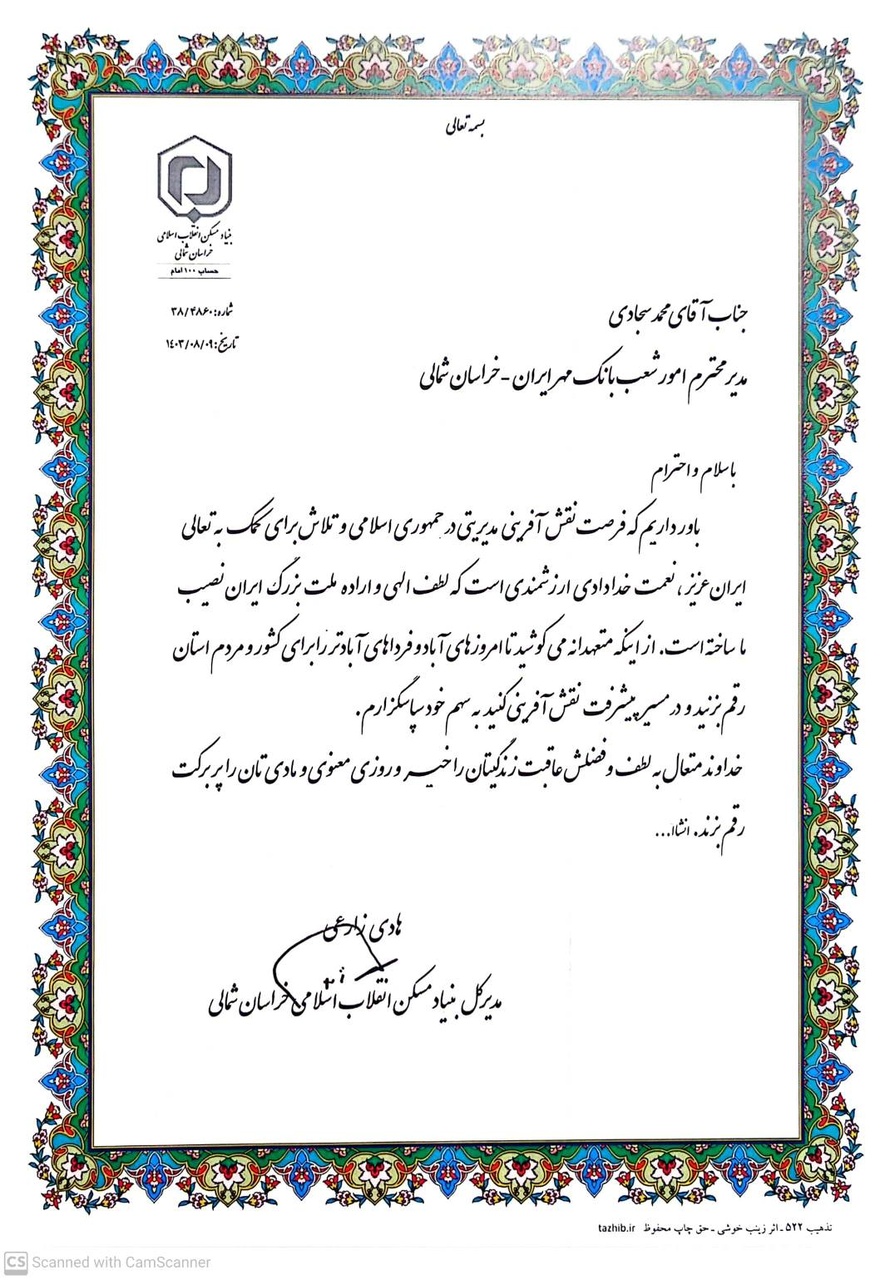 بسمه تعالی
بنیاد مسکن انقلاب اسلامی
خراسان شمالی
حساب ۱۰۰ امام
شماره: ۳۸/۴۸۶۰
تاریخ: ۱۴۰۳/۰۸/۰۹
جناب آقای محمد سجادی
مدیر محترم امور شعب بانک مهر ایران - خراسان شمالی
باسلام و احترام
باور داریم که فرصت نقش آفرینی مدیریتی در جمهوری اسلامی و تلاش برای کمک به تعالی
ایران عزیز، نعمت خدادادی ارزشمندی است که لطف الهی و اراده ملت بزرگ ایران نصیب
ما ساخته است. از اینکه متعهدانه می کوشید تا امروزهای آباد و فرداهای آبادتر را برای کشور و مردم استان
رقم بزنید و در مسیر پیشرفت نقش آفرینی کنید به سهم خود سپاسگزارم.
خداوند متعال به لطف و فضلش عاقبت زندگیتان را خیر و روزی معنوی و مادی تان را پر برکت
رقم بزند. انشاا...
هادی زارعی
مدیرکل بنیاد مسکن انقلاب اسلامی خراسان شمالی
تذهیب ۵۲۲ - اثر زینب خوشی - حق چاپ محفوظ tazhib.ir
CS Scanned with CamScanner